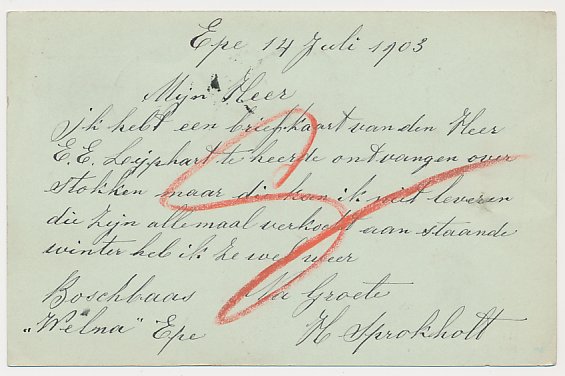 Epe 14 Juli 1903
Mijn Heer
ik hebt een briefkaart van den Heer
E.E. Lijphart te heerde ontvangen over
Stokken maar die kan ik niet leveren
die zijn allemaal verkocht aan staande
winter heb ik ze wel weer
Boschbaas Na Groete
„Welna" Epe H Sprokholt